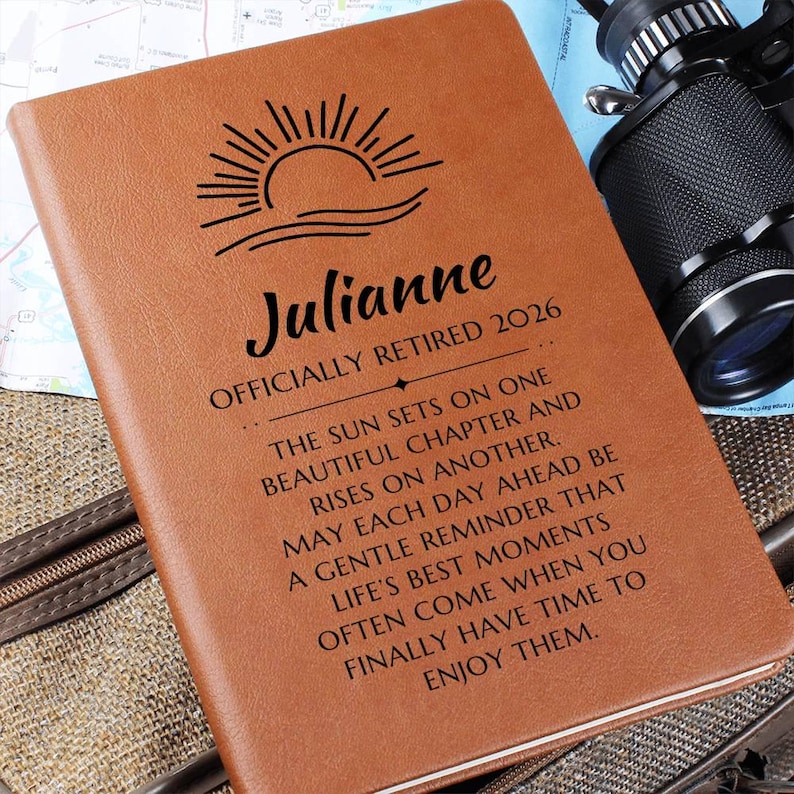 Julianne
OFFICIALLY RETIRED 2026
THE SUN SETS ON ONE
BEAUTIFUL CHAPTER AND
RISES ON ANOTHER.
MAY EACH DAY AHEAD BE
A GENTLE REMINDER THAT
LIFE'S BEST MOMENTS
OFTEN COME WHEN YOU
FINALLY HAVE TIME TO
ENJOY THEM.